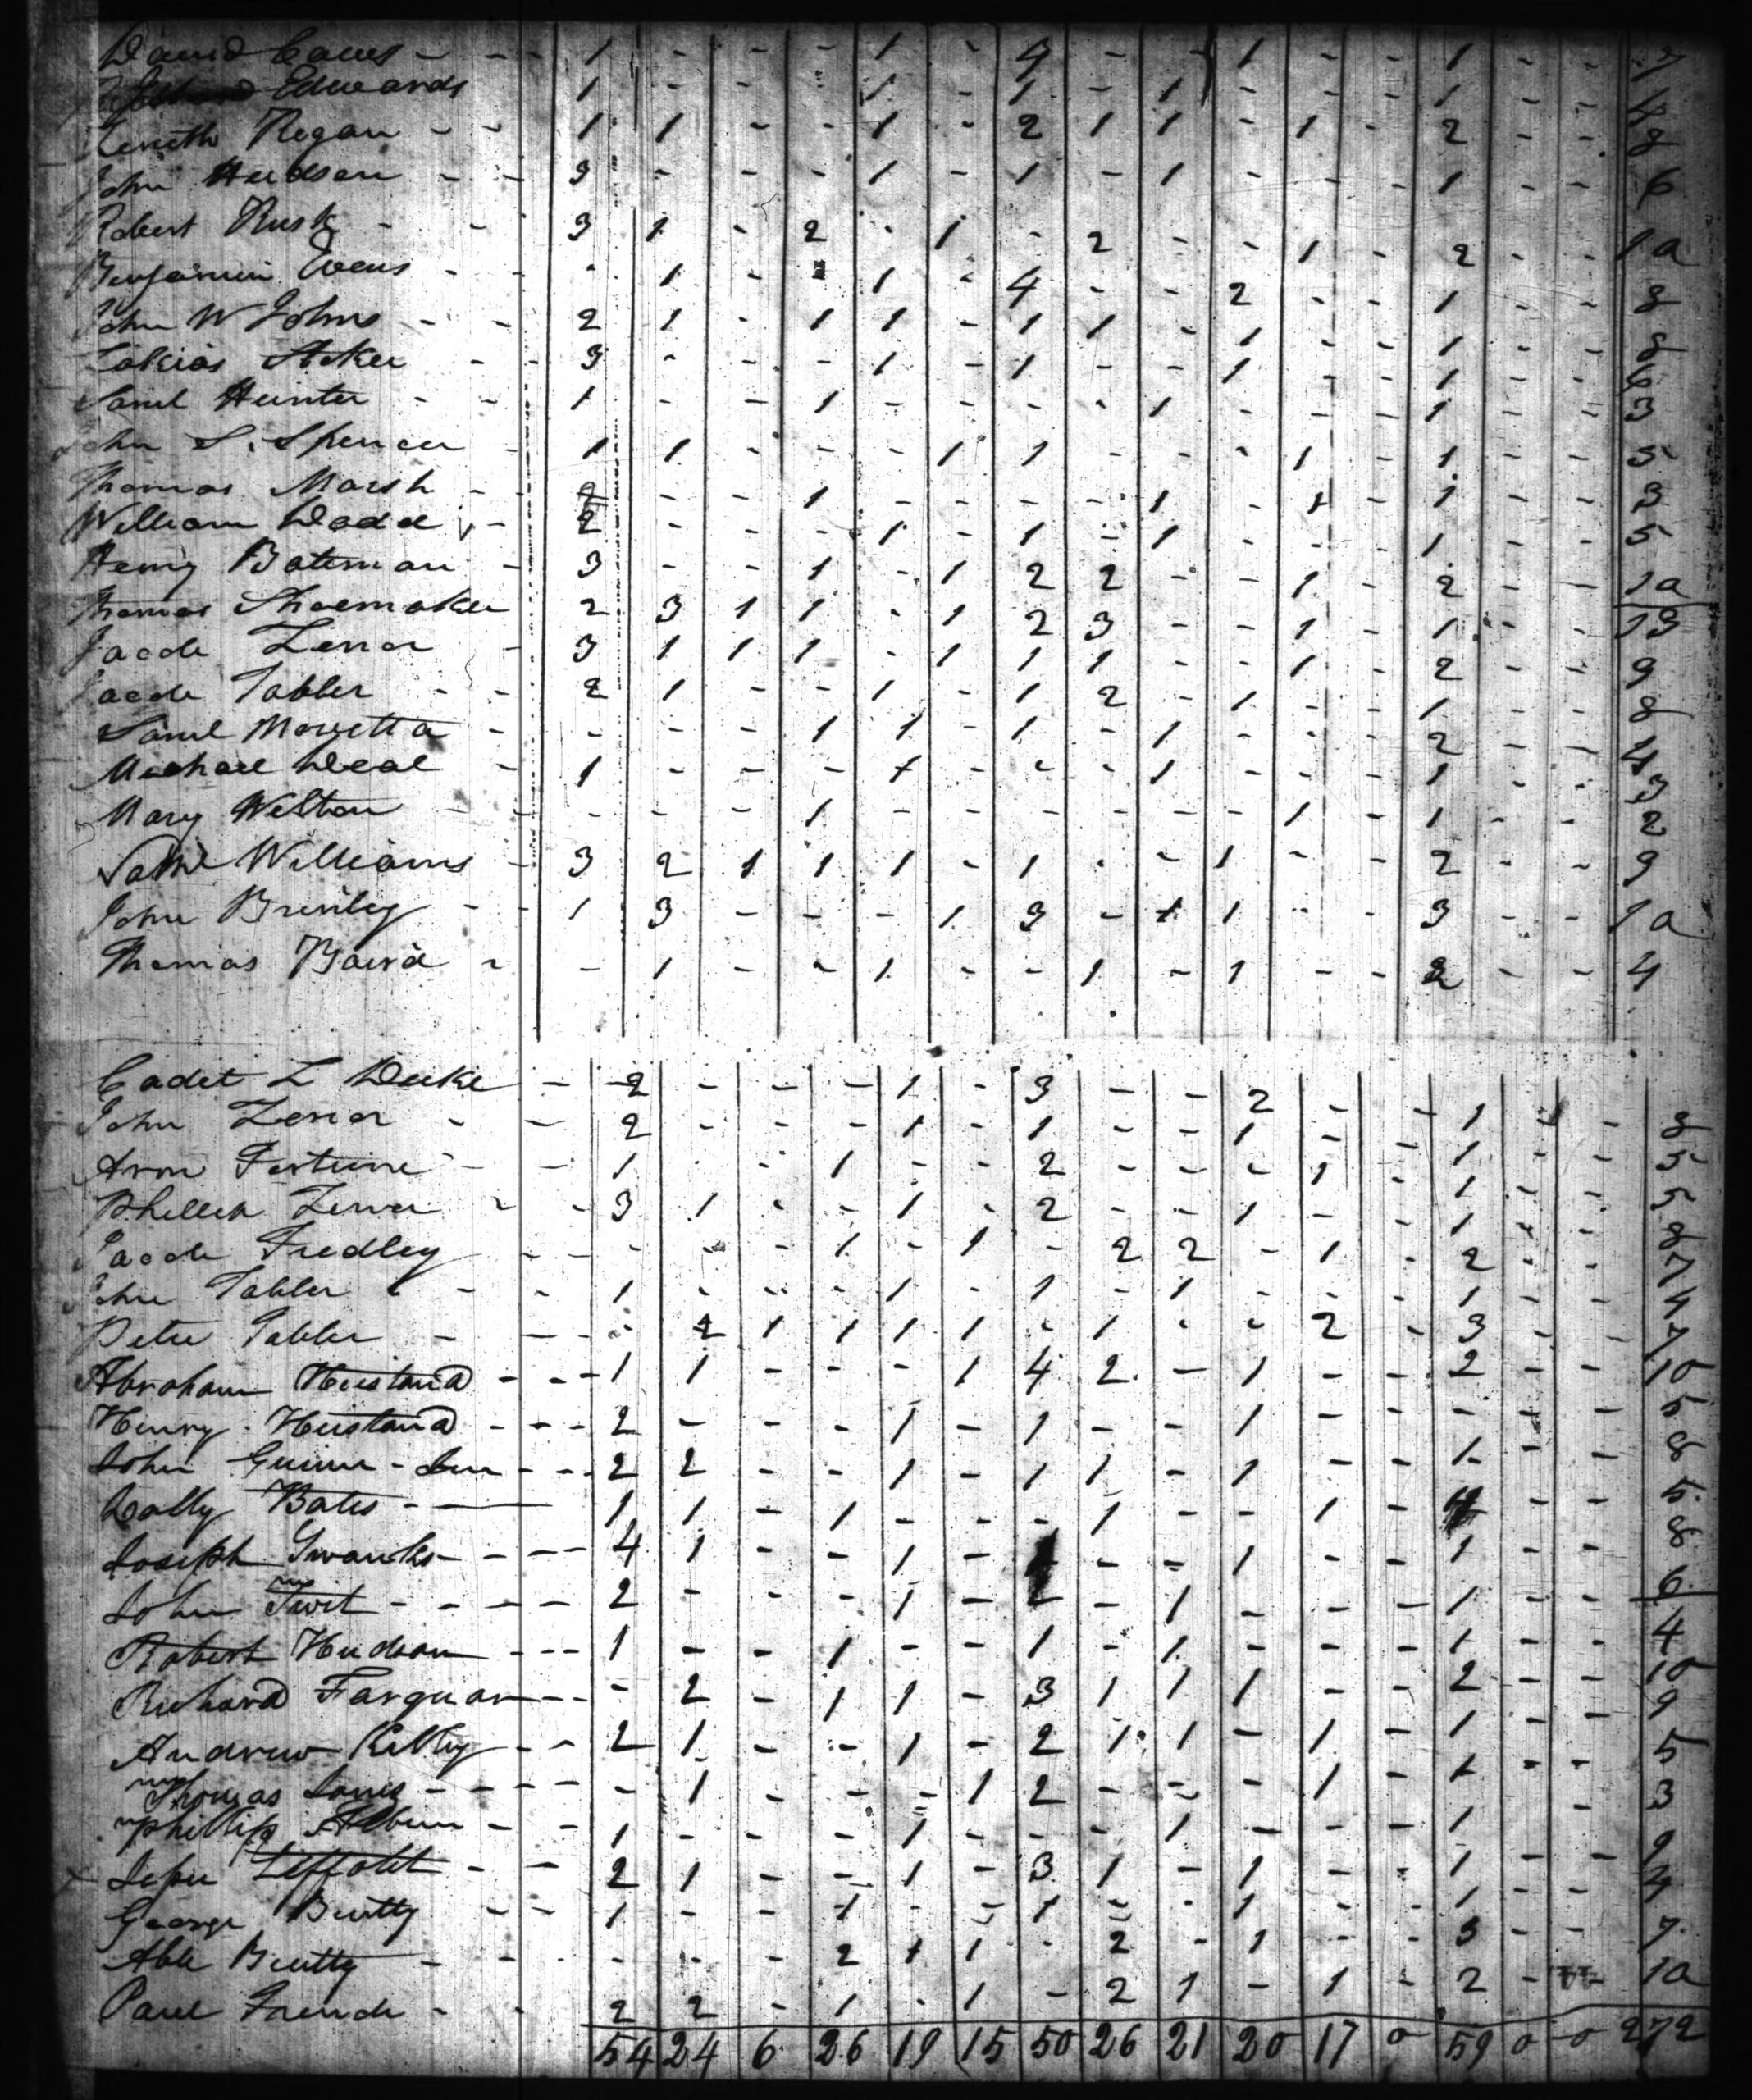 David - - 1 - - - 1 - 4 - - 1 - - 1 - - 7
Edwards 1 - - - 1 - 1 - 1 - - - 1 - -
Regan - - 1 1 - - 1 - 2 1 1 - 1 - 2 - - 8
John Hudson - - 3 - - - 1 - 1 - 1 - - - 1 - - 6
Robert Rusk - - 3 1 - 2 - 1 - 2 - - 1 - 2 - - 10
Benjamin Evens - - 1 - - 1 - 4 - - 2 - - 1 - - 8
John W Johns - - 2 1 - 1 1 - 1 1 - 1 - - 1 - - 8
Acker - - 3 - - - 1 - 1 - - 1 - - 1 - - 6
Saml Hunter - - 1 - - 1 - - - - 1 - - - 1 - - 3
John S. Spencer - 1 1 - - - 1 1 - - - 1 - 1 - - 5
Thomas Marsh - - - 1 - - - - 1 - 1 - 1 - - 3
William Dodd - 2 - - - 1 - 1 - 1 - - - 1 - - 5
Henry Bateman - 3 - - 1 - 1 2 2 - - 1 - 2 - - 10
Thomas Shoemaker 2 3 1 1 - 1 2 3 - - 1 - 1 - - 13
Jacob Zenor - 3 1 1 1 - 1 1 1 - - 1 - 2 - - 9
Jacob Tabler - - 2 1 - - 1 - 1 2 - 1 - - 1 - - 8
Saml - - - - 1 1 - 1 - 1 - - - 2 - - 4
Michael Deal - 1 - - - 1 - - - 1 - - - 1 - - 3
Mary Welton - - - - - 1 - - - - - - 1 - 1 - - 2
Williams - 3 2 1 1 1 - 1 - - 1 - - 2 - - 9
John Brinley - - 1 3 - - - 1 3 - 1 1 - - 3 - - 10
Thomas Baird - - 1 - - 1 - - 1 - 1 - - 2 - - 4
Cadet L Deeke - 2 - - - 1 - 3 - - 2 - - 1 - - 8
John Zenor - - 2 - - - 1 - 1 - - 1 - - 1 - - 5
Aron Fortune - - 1 - - 1 - - 2 - - - 1 - 1 - - 5
Phillip Zenor - - 3 1 - - 1 - 2 - - 1 - - 1 - - 8
Jacob Fredley - - - - - 1 - 1 - 2 2 - 1 - 2 - - 7
John Tabler - - 1 - - - 1 - 1 - 1 - - - 1 - - 4
Peter Tabler - - - 2 1 1 1 1 - 1 - - 2 - 3 - - 7
Abraham Heistand - - - 1 1 - - - 1 4 2 - 1 - - 2 - - 10
Henry Heistand - - - 2 - - - 1 - 1 - - 1 - - - - - 5
John - - - 2 2 - - 1 - 1 1 - 1 - - 1 - - 8
Bates - 1 1 - 1 - - - 1 - - 1 - - - 5
Joseph Swanks - - - 4 1 - - 1 - - - 1 - - 1 - - 8
John - - - - 2 - - - 1 - 2 - 1 - - - 1 - - 6
Robert Hudson - - - 1 - - 1 - - 1 - 1 - - - 1 - - 4
Richard Farquar - - - 2 - 1 1 - 3 1 1 1 - - 2 - - 10
Andrew - - 2 1 - - 1 - 2 1 1 - 1 - 1 - - 9
Thomas Jones - - - - - 1 - - - 1 2 - - - 1 - 1 - - 5
Phillip Albin - - 1 - - - 1 - - - 1 - - - 1 - - 3
- - 2 1 - - 1 - 3 1 - 1 - - 1 - - 9
George Beatty - - 1 - - 1 - - 1 - - 1 - - 1 - - 4
Able Beatty - - - - - 2 1 1 - 2 - 1 - - 3 - - 7
Paul French - - 2 2 - 1 - 1 - 2 1 - 1 - 2 - - 10
54 24 6 26 19 15 50 26 21 20 17 0 59 0 0 272